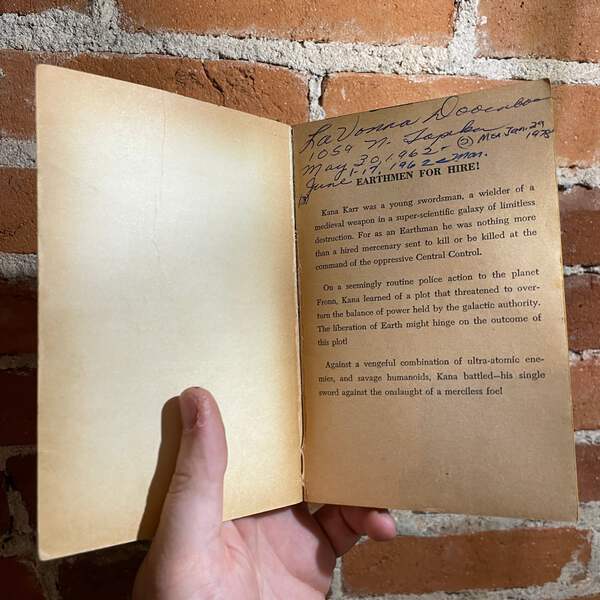 LaVonna Doornbos
1059 N. Topeka
May 30, 1962 - ② Mon Jan. 29
June 1-17, 1962 Mon. 1978
EARTHMEN FOR HIRE!
Kana Karr was a young swordsman, a wielder of a
medieval weapon in a super-scientific galaxy of limitless
destruction. For as an Earthman he was nothing more
than a hired mercenary sent to kill or be killed at the
command of the oppressive Central Control.
On a seemingly routine police action to the planet
Fronn, Kana learned of a plot that threatened to over-
turn the balance of power held by the galactic authority.
The liberation of Earth might hinge on the outcome of
this plot!
Against a vengeful combination of ultra-atomic ene-
mies, and savage humanoids, Kana battled—his single
sword against the onslaught of a merciless foe!